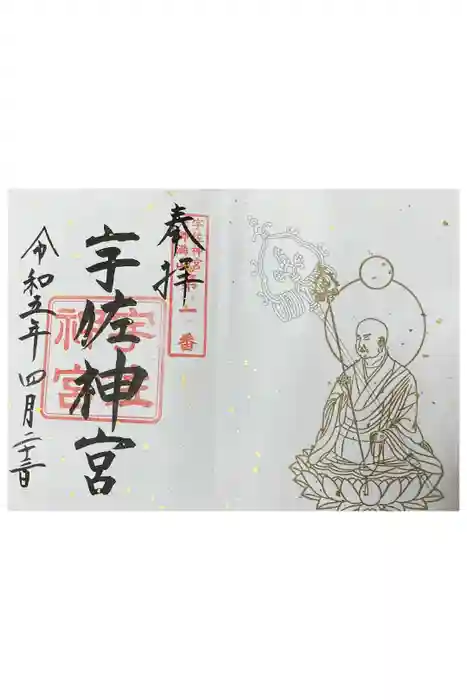 奉拝
宇佐神宮
一番
宇佐神宮
宇佐
神宮
令和五年四月二十三日